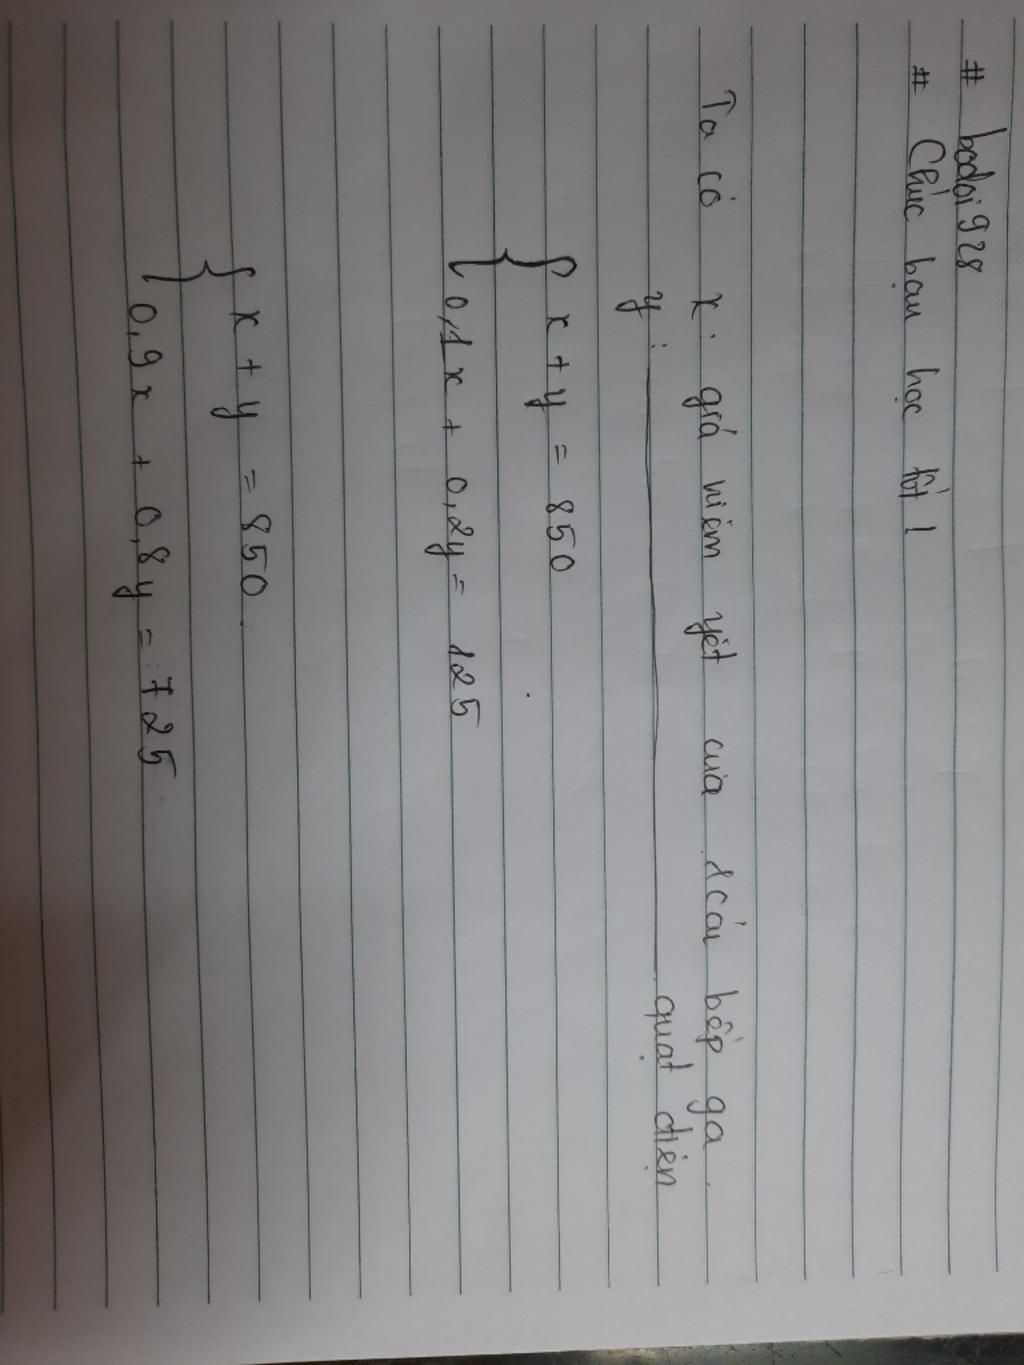 # bodoi928
# Chúc bạn học tốt!
Ta có x: giá niêm yết của 1 cái bếp ga
y: ——— quạt điện
{ x + y = 850
0,1x + 0,2y = 125
{ x + y = 850
0,9x + 0,8y = 725